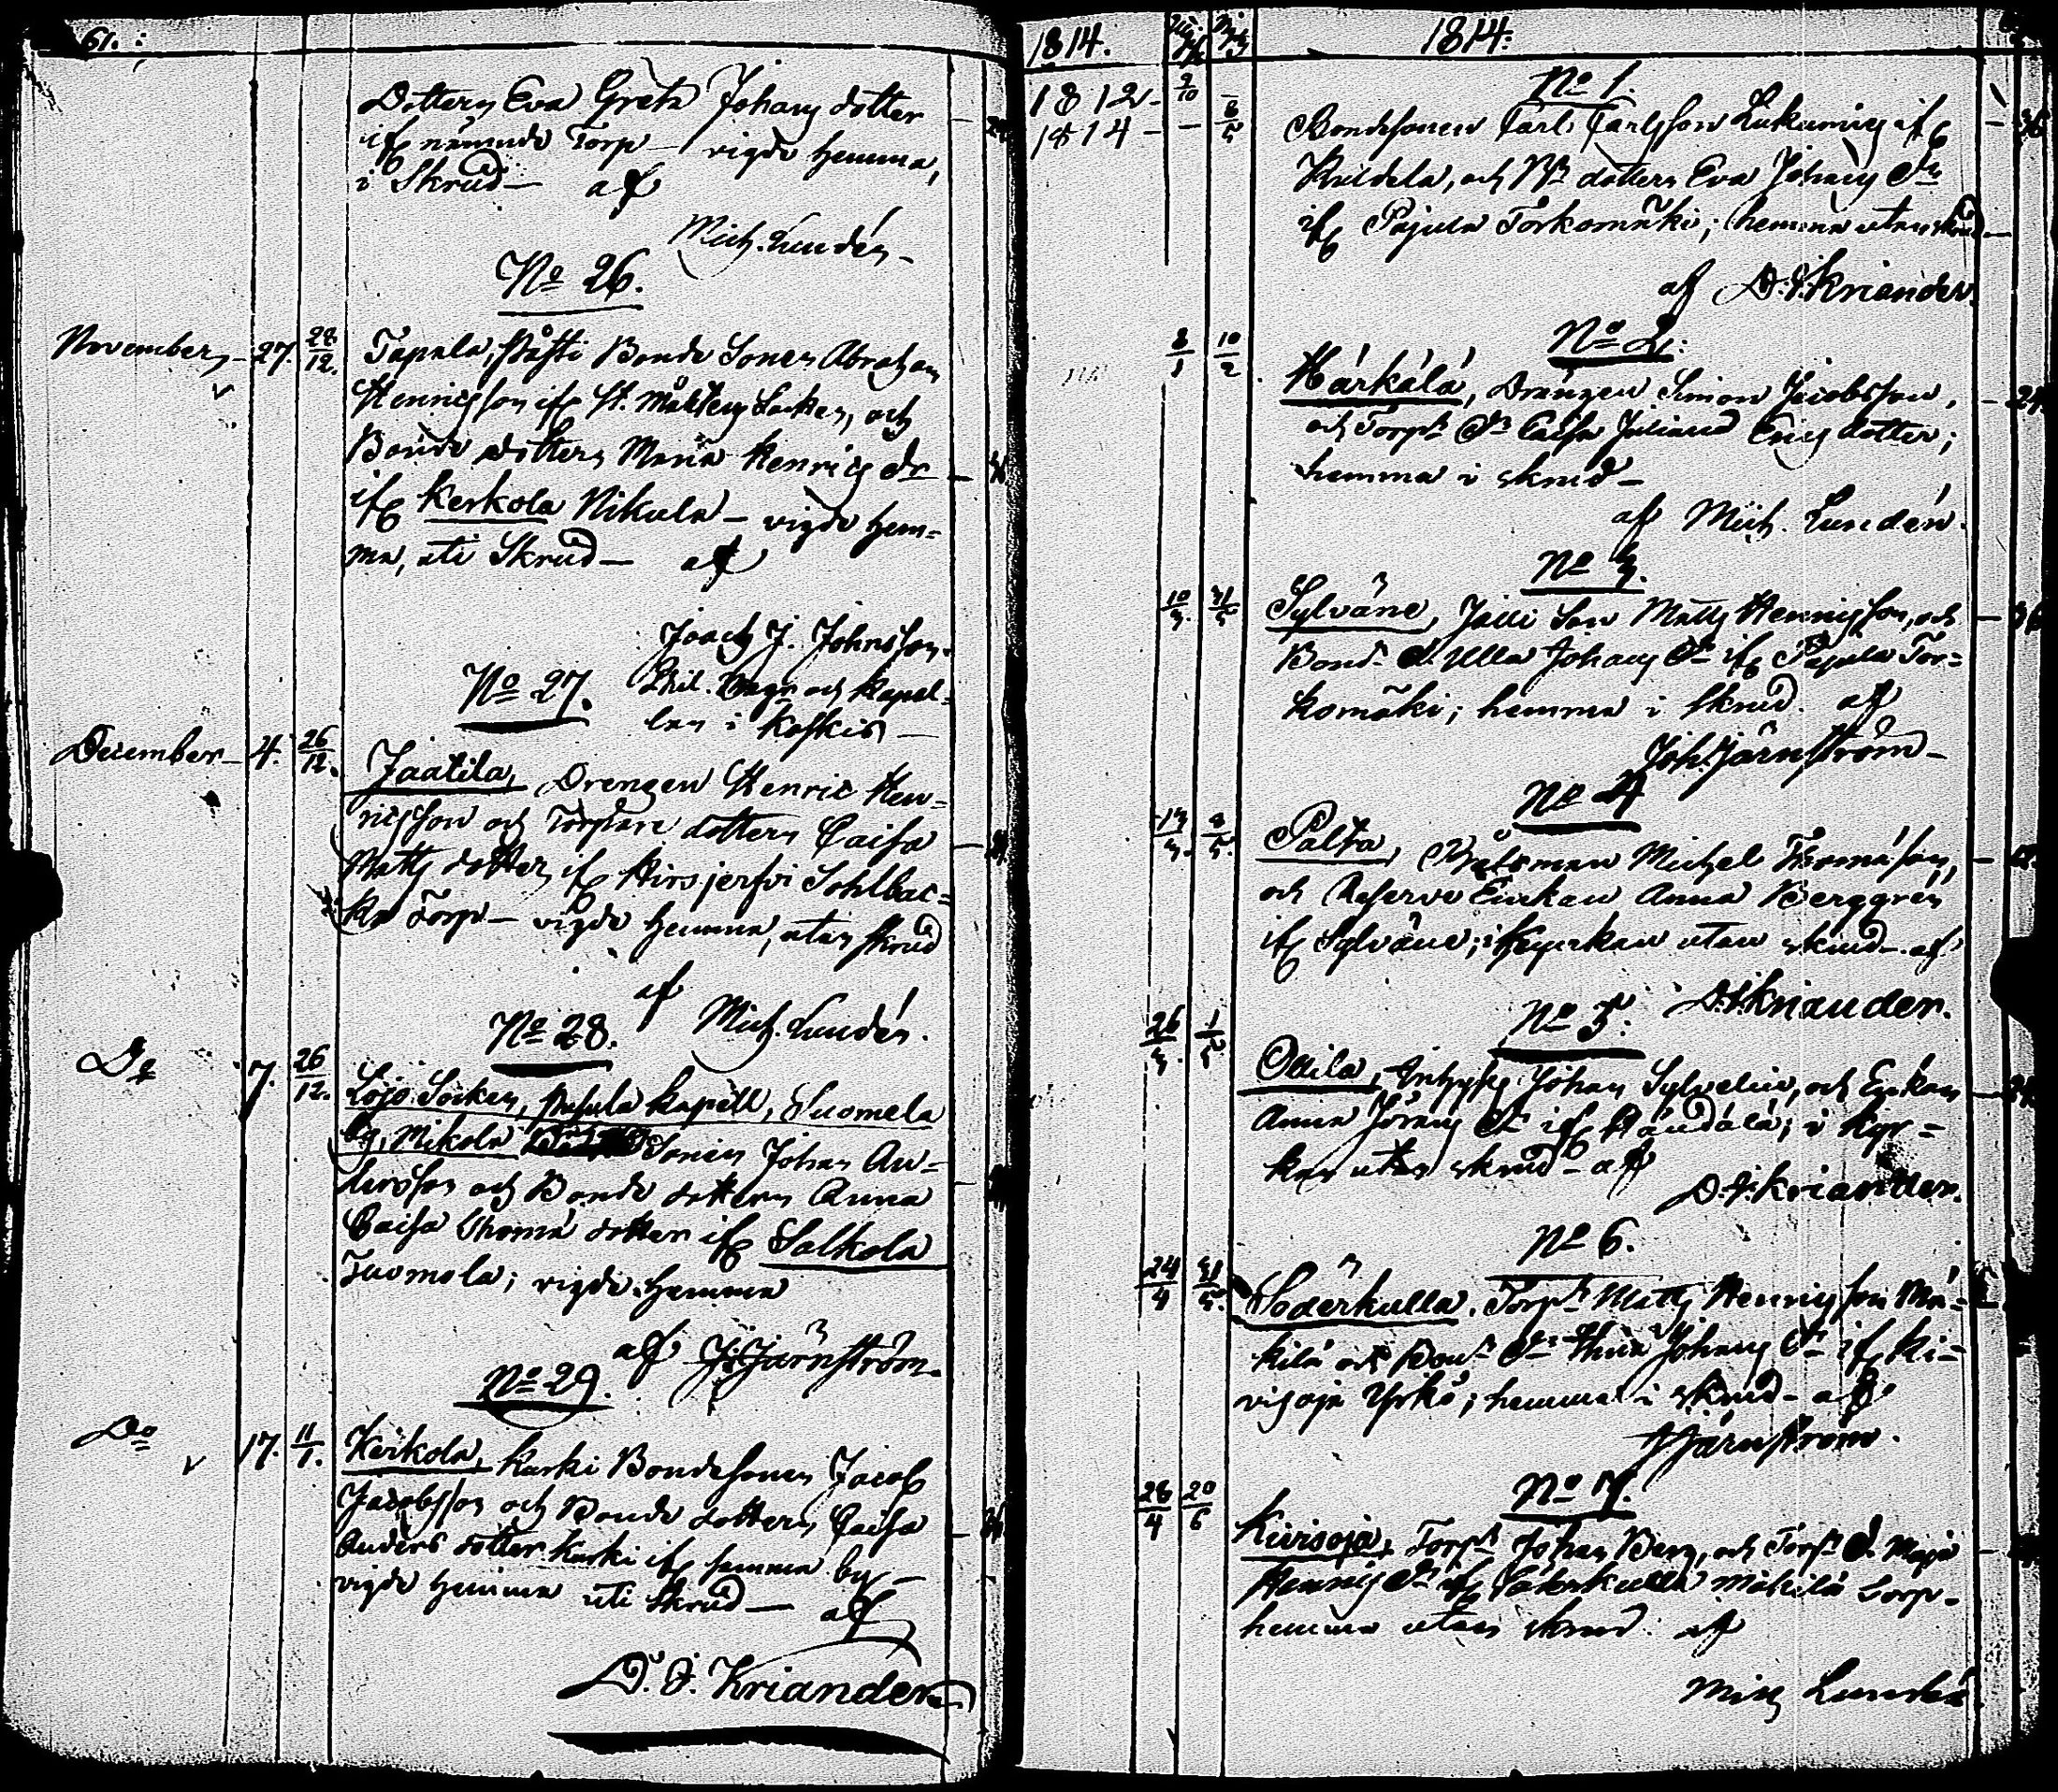 61.
Dottern Eva Greta Johans dotter
ifr nämnde Torp - vigde hemma,
i Skrud - af
Mich. Lundén -
No 26.
November - 27. 28/12. Tapala, Bonde Sonen Abraham
Henricsson ifr St. Mårtens Socken, och
Bonde dottern Maria Henrics dr
ifr Kerkola Nikula - vigde hem=
ma, uti Skrud - af
Joach J. Johnsson.
No 27. och Kapel=
lan i Koskis -
December - 4. 26/12. Jaatila, Drengen Henric Hen=
ricsson och Torpare dottern Caisa
Matts dotter ifr Hirsjerfvi Sohlbac=
ka Torp - vigde hemma, utan skrud
af
No 28. Mich. Lundén.
Do 7. 26/12. Lojo Socken, Pusula Kapell, Suomela
by, Mikola Sonen Johan An=
dersson och Bonde dottern Anna
Caisa Thomä dotter ifr Salkola
Tuomola; vigde hemma
af J. Järnström.
No 29.
Do 17. 11/1. Kerkola, Kurki Bondesonen Jacob
Jacobsson och Bonde dottern Caisa
Anders dotter Kurki ifr samma by -
vigde hemma uti skrud - af
D. J. Kriander
1814. 1814.
No 1.
1812 - 2/10 -
1814 - - 8/5 Bondesonen Carl Carlsson ifr
och Bde dottern Eva Johans Dr
ifr Pajula Torkomäki; hemma utan skrud -
af D. J. Kriander.
No 2.
8/1 10/2 Härkälä, Drängen Simon Jacobsson,
och Torpe Dr Caisa Juliana Erics dotter;
hemma i skrud -
af Mich. Lundén.
No 3.
10/3. 31/5 Sylväne, Jalli Son Matts Henricsson, och
Bond. d. Ulla Johans Dr ifr Pajula Tor=
komäki; hemma i skrud. af
Joh. Järnström -
No 4
13/3. 8/5. Palta, Michel Thomäson,
och Reserve Enkan Anna Berggrén
ifr Sylväne; i Kyrkan utan skrud - af
D. J. Kriander.
No 5.
26/3. 1/5. Ollila, Johan Sylvelin, och Enkan
Anna Jörans Dr ifr; i Kyr=
kan utan skrud - af
D. J. Kriander.
No 6.
24/4 31/5. Söderkulla. Torpn Matts Henricsson Mä=
kilä och Bond. Dr Johans Dr ifr Ki=
visoja Yrkö; hemma i skrud - af
J. Järnström.
No 7.
28/4 20/6 Kivisoja, Torpn Johan Berg, och Torps d. Maja
Henrics Dr ifr Söderkulla Mäkilä Torp -
hemma utan skrud. af
Mich Lundén